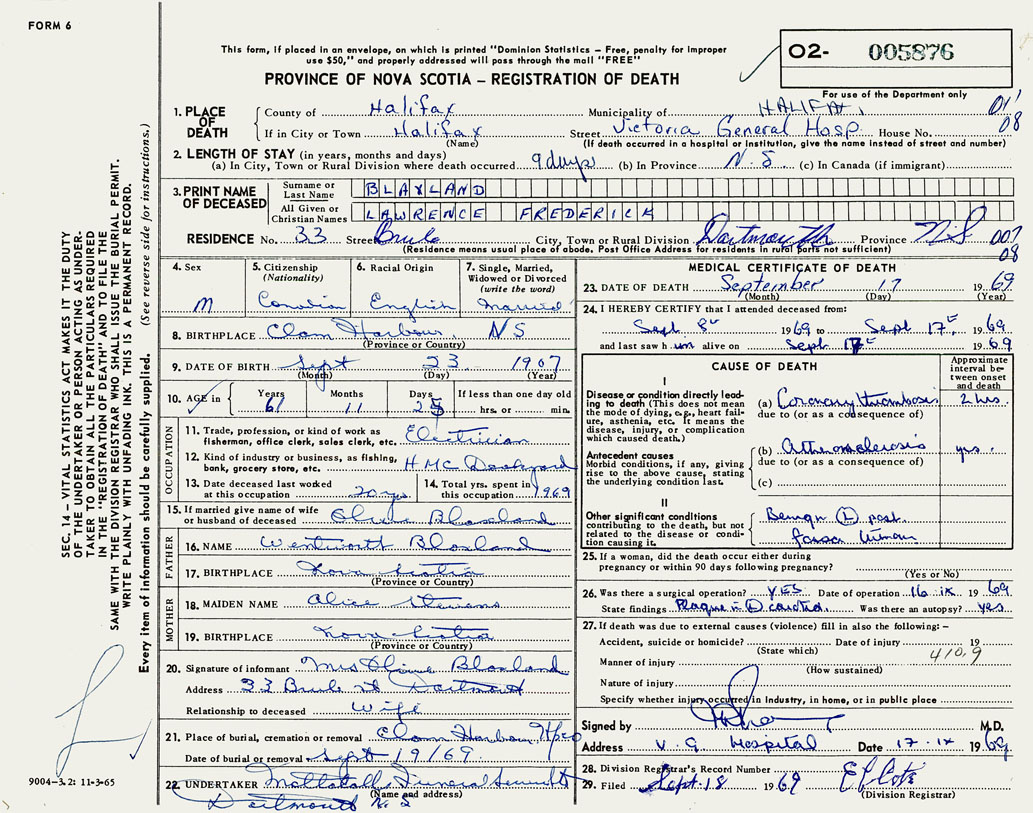 FORM 6
This form, if placed in an envelope, on which is printed "Dominion Statistics – Free, penalty for improper
use $50," and properly addressed will pass through the mail "FREE"
PROVINCE OF NOVA SCOTIA – REGISTRATION OF DEATH
O2- 005876
For use of the Department only
SEC. 14 – VITAL STATISTICS ACT MAKES IT THE DUTY
OF THE UNDERTAKER OR PERSON ACTING AS UNDER-
TAKER TO OBTAIN ALL THE PARTICULARS REQUIRED
IN THE "REGISTRATION OF DEATH" AND TO FILE THE
SAME WITH THE DIVISION REGISTRAR WHO SHALL ISSUE THE BURIAL PERMIT.
WRITE PLAINLY WITH UNFADING INK. THIS IS A PERMANENT RECORD.
Every item of information should be carefully supplied. (See reverse side for instructions.)
1. PLACE OF DEATH County of Halifax Municipality of HALIFAX. 01'
If in City or Town Halifax Street Victoria General Hosp. House No. 08
(Name) (If death occurred in a hospital or institution, give the name instead of street and number)
2. LENGTH OF STAY (in years, months and days)
(a) In City, Town or Rural Division where death occurred 9 days (b) In Province N.S (c) In Canada (if immigrant)
3. PRINT NAME OF DECEASED Surname or Last Name BLAXLAND
All Given or Christian Names LAWRENCE FREDERICK
RESIDENCE No. 33 Street Brule City, Town or Rural Division Dartmouth Province N.S 007
(Residence means usual place of abode. Post Office Address for residents in rural parts not sufficient) 08
4. Sex 5. Citizenship (Nationality) 6. Racial Origin 7. Single, Married, Widowed or Divorced (write the word)
M English Married
8. BIRTHPLACE Clam Harbour NS
(Province or Country)
9. DATE OF BIRTH Sept 23 1907
(Month) (Day) (Year)
10. AGE in Years 61 Months 11 Days 25 If less than one day old hrs. or min.
OCCUPATION
11. Trade, profession, or kind of work as fisherman, office clerk, sales clerk, etc. Electrician
12. Kind of industry or business, as fishing, bank, grocery store, etc. H.M.C Dockyard
13. Date deceased last worked at this occupation 20 yrs. 14. Total yrs. spent in this occupation 1969
15. If married give name of wife or husband of deceased Olive Blaxland
FATHER
16. NAME Wentworth Blaxland
17. BIRTHPLACE Nova Scotia
(Province or Country)
MOTHER
18. MAIDEN NAME Alice Stevens
19. BIRTHPLACE Nova Scotia
(Province or Country)
20. Signature of informant Mrs Olive Blaxland
Address 33 Brule St Dartmouth
Relationship to deceased Wife
21. Place of burial, cremation or removal Clam Harbour Hfx Co
Date of burial or removal Sept 19/69.
22. UNDERTAKER Mattatall Funeral
(Name and address)
Dartmouth N.S
MEDICAL CERTIFICATE OF DEATH
23. DATE OF DEATH September 17 19 69
(Month) (Day) (Year)
24. I HEREBY CERTIFY that I attended deceased from:
Sept 8th 1969 to Sept 17th 1969
and last saw him alive on Sept 17th 1969
CAUSE OF DEATH Approximate interval between onset and death
I
Disease or condition directly leading to death (This does not mean the mode of dying, e.g., heart failure, asthenia, etc. It means the disease, injury, or complication which caused death.)
(a) Coronary thrombosis 2 hrs.
due to (or as a consequence of)
Antecedent causes
Morbid conditions, if any, giving rise to the above cause, stating the underlying condition last.
(b) Atherosclerosis yrs.
due to (or as a consequence of)
(c)
II
Other significant conditions contributing to the death, but not related to the disease or condition causing it.
Benign (L) post.
fossa tumour
25. If a woman, did the death occur either during pregnancy or within 90 days following pregnancy?
(Yes or No)
26. Was there a surgical operation? YES Date of operation 16 ix 19 69
State findings Plaque in (L) carotid. Was there an autopsy? yes
27. If death was due to external causes (violence) fill in also the following: –
Accident, suicide or homicide? Date of injury 19
(State which) 410.9
Manner of injury
(How sustained)
Nature of injury
Specify whether injury occurred in Industry, in home, or in public place
Signed by M.D.
Address V.G Hospital Date 17-IX 1969
28. Division Registrar's Record Number
29. Filed Sept. 18 1969
(Division Registrar)
9004-3.2: 11-3-65